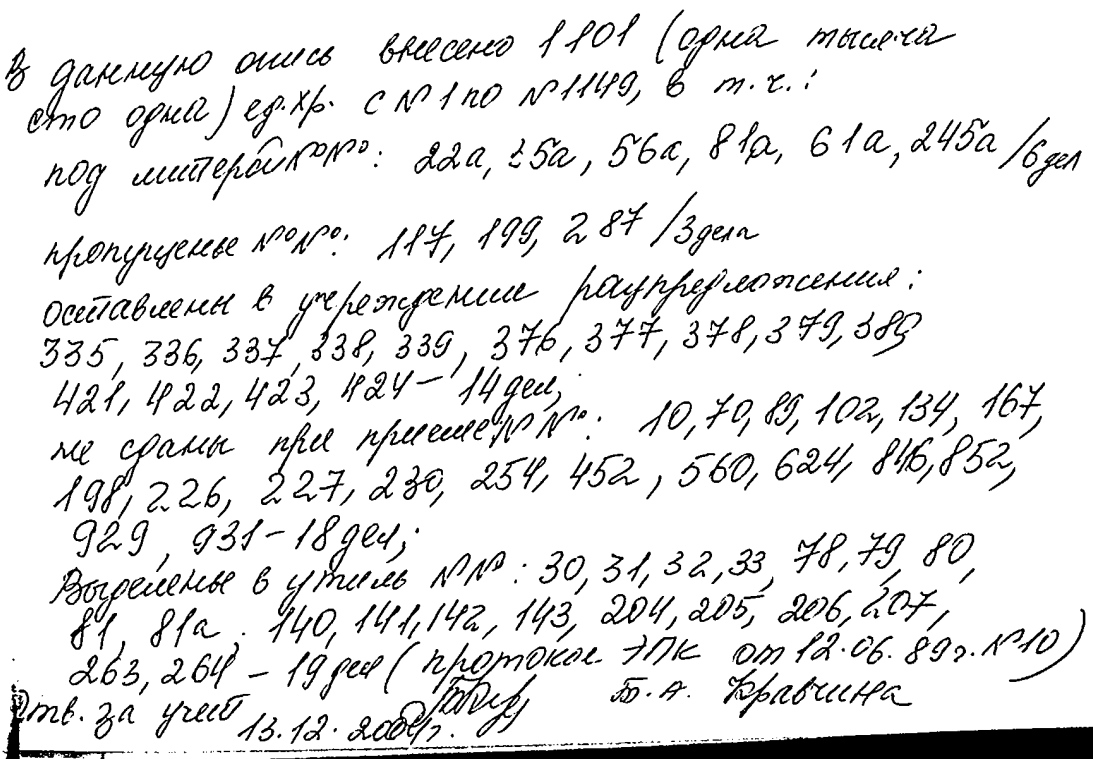 В данную опись внесено 1101 (одна тысяча
сто одна) ед.хр. с №1 по №1149, в т.ч.:
под литерой №№: 22а, 25а, 56а, 81а, 61а, 245а /6 дел
пропущены №№: 117, 199, 287 /3 дела
оставлены в учреждении :
335, 336, 337, 338, 339, 376, 377, 378, 379, 389
421, 422, 423, 424 – 14 дел;
не сданы при приеме №№: 10, 70, 89, 102, 134, 167,
198, 226, 227, 230, 254, 452, 560, 624, 846, 852,
929, 931 – 18 дел;
Выделены в утиль №№: 30, 31, 32, 33, 78, 79, 80,
81, 81а, 140, 141, 142, 143, 204, 205, 206, 207,
263, 264 – 19 дел (протокол ЭПК от 12.06.89г. №10)
Отв. за учет Т.А. Кравчина
13.12. г.